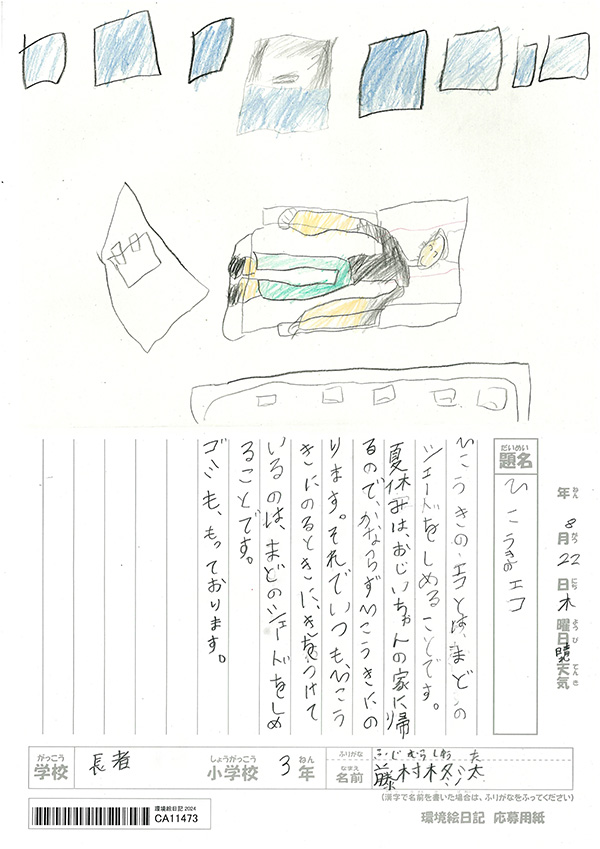 年 8月22日 木曜日 晴れ 天気
ねん がつ にち ようび てんき
だいめい
題名
ひこうきエコ
ひこうきの、エコとは、まどの
シェードをしめることです。
夏休みは、おじいちゃんの家に帰
るので、かならずひこうきにの
ります。それでいつも、ひこう
きにのるときに、きをつけて
いるのは、まどのシェードをしめ
ることです。
ゴミも、もっております。
がっこう
学校
長者
しょうがっこう
小学校
3年
ねん
ふりがな
ふじむら しゅうた
なまえ
名前
藤村柊汰
(漢字で名前を書いた場合は、ふりがなをふってください)
環境絵日記2024
CA11473
環境絵日記 応募用紙